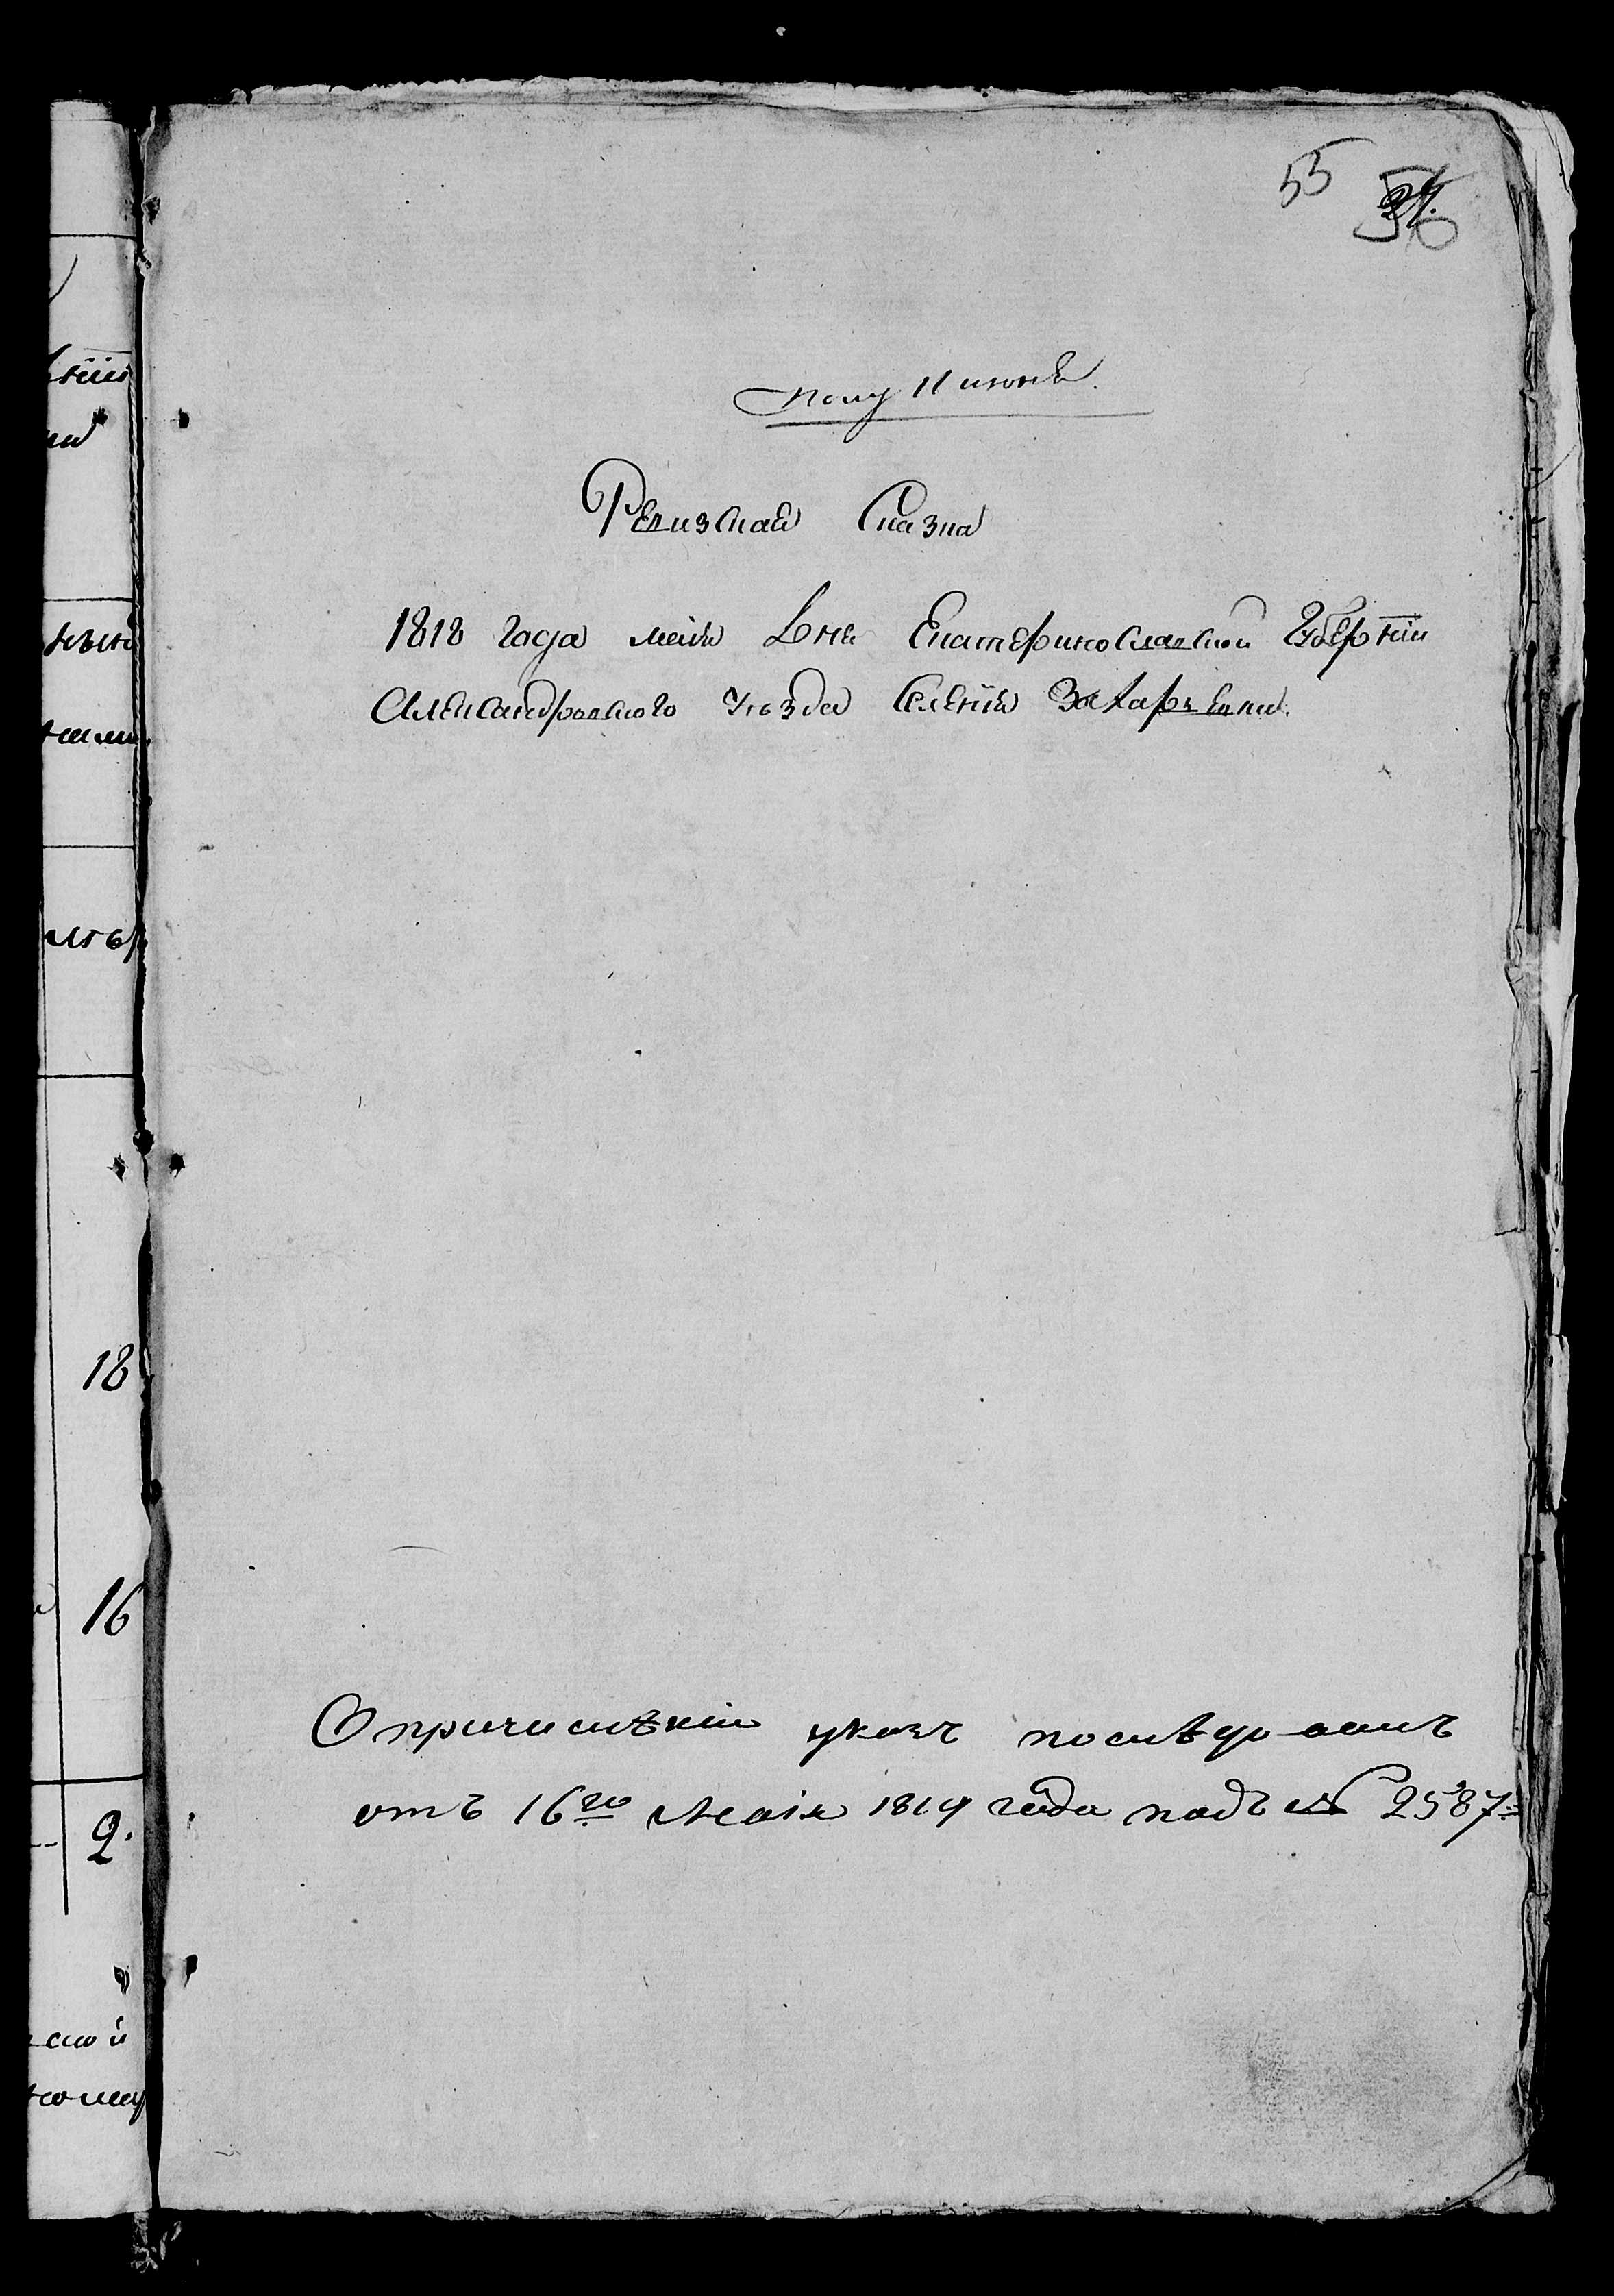 55
Полу 11 июня.
Ревизская Сказка
1818 года маія дня Екатеринославской Губерніи
Александровского Уѣзда Селенія Захарьевки.
О причисленіи указъ последовалъ
отъ 16го Маія 1819 года подъ № 2587
18
16
2.